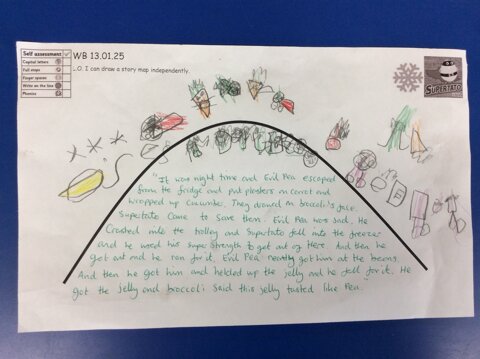 Self assessment
Capital letters
Full stops
Finger spaces
Write on the line
Phonics
WB 13.01.25
L.O. I can draw a story map independently.
SUPERTATO
"It was night time and Evil Pea escaped
from the fridge and put plasters on carrot and
wrapped up Cucumber. They drawed on broccoli's face.
Supertato came to save them. Evil Pea was sad. He
Crashed into the trolley and Supertato fell into the freezer
and he used his super strength to get out of there. And then he
got out and he ran for it. Evil Pea nearly got him at the beans.
And then he got him and helded up the jelly and he fell for it. He
got the jelly and broccoli said this jelly tasted like Pea."